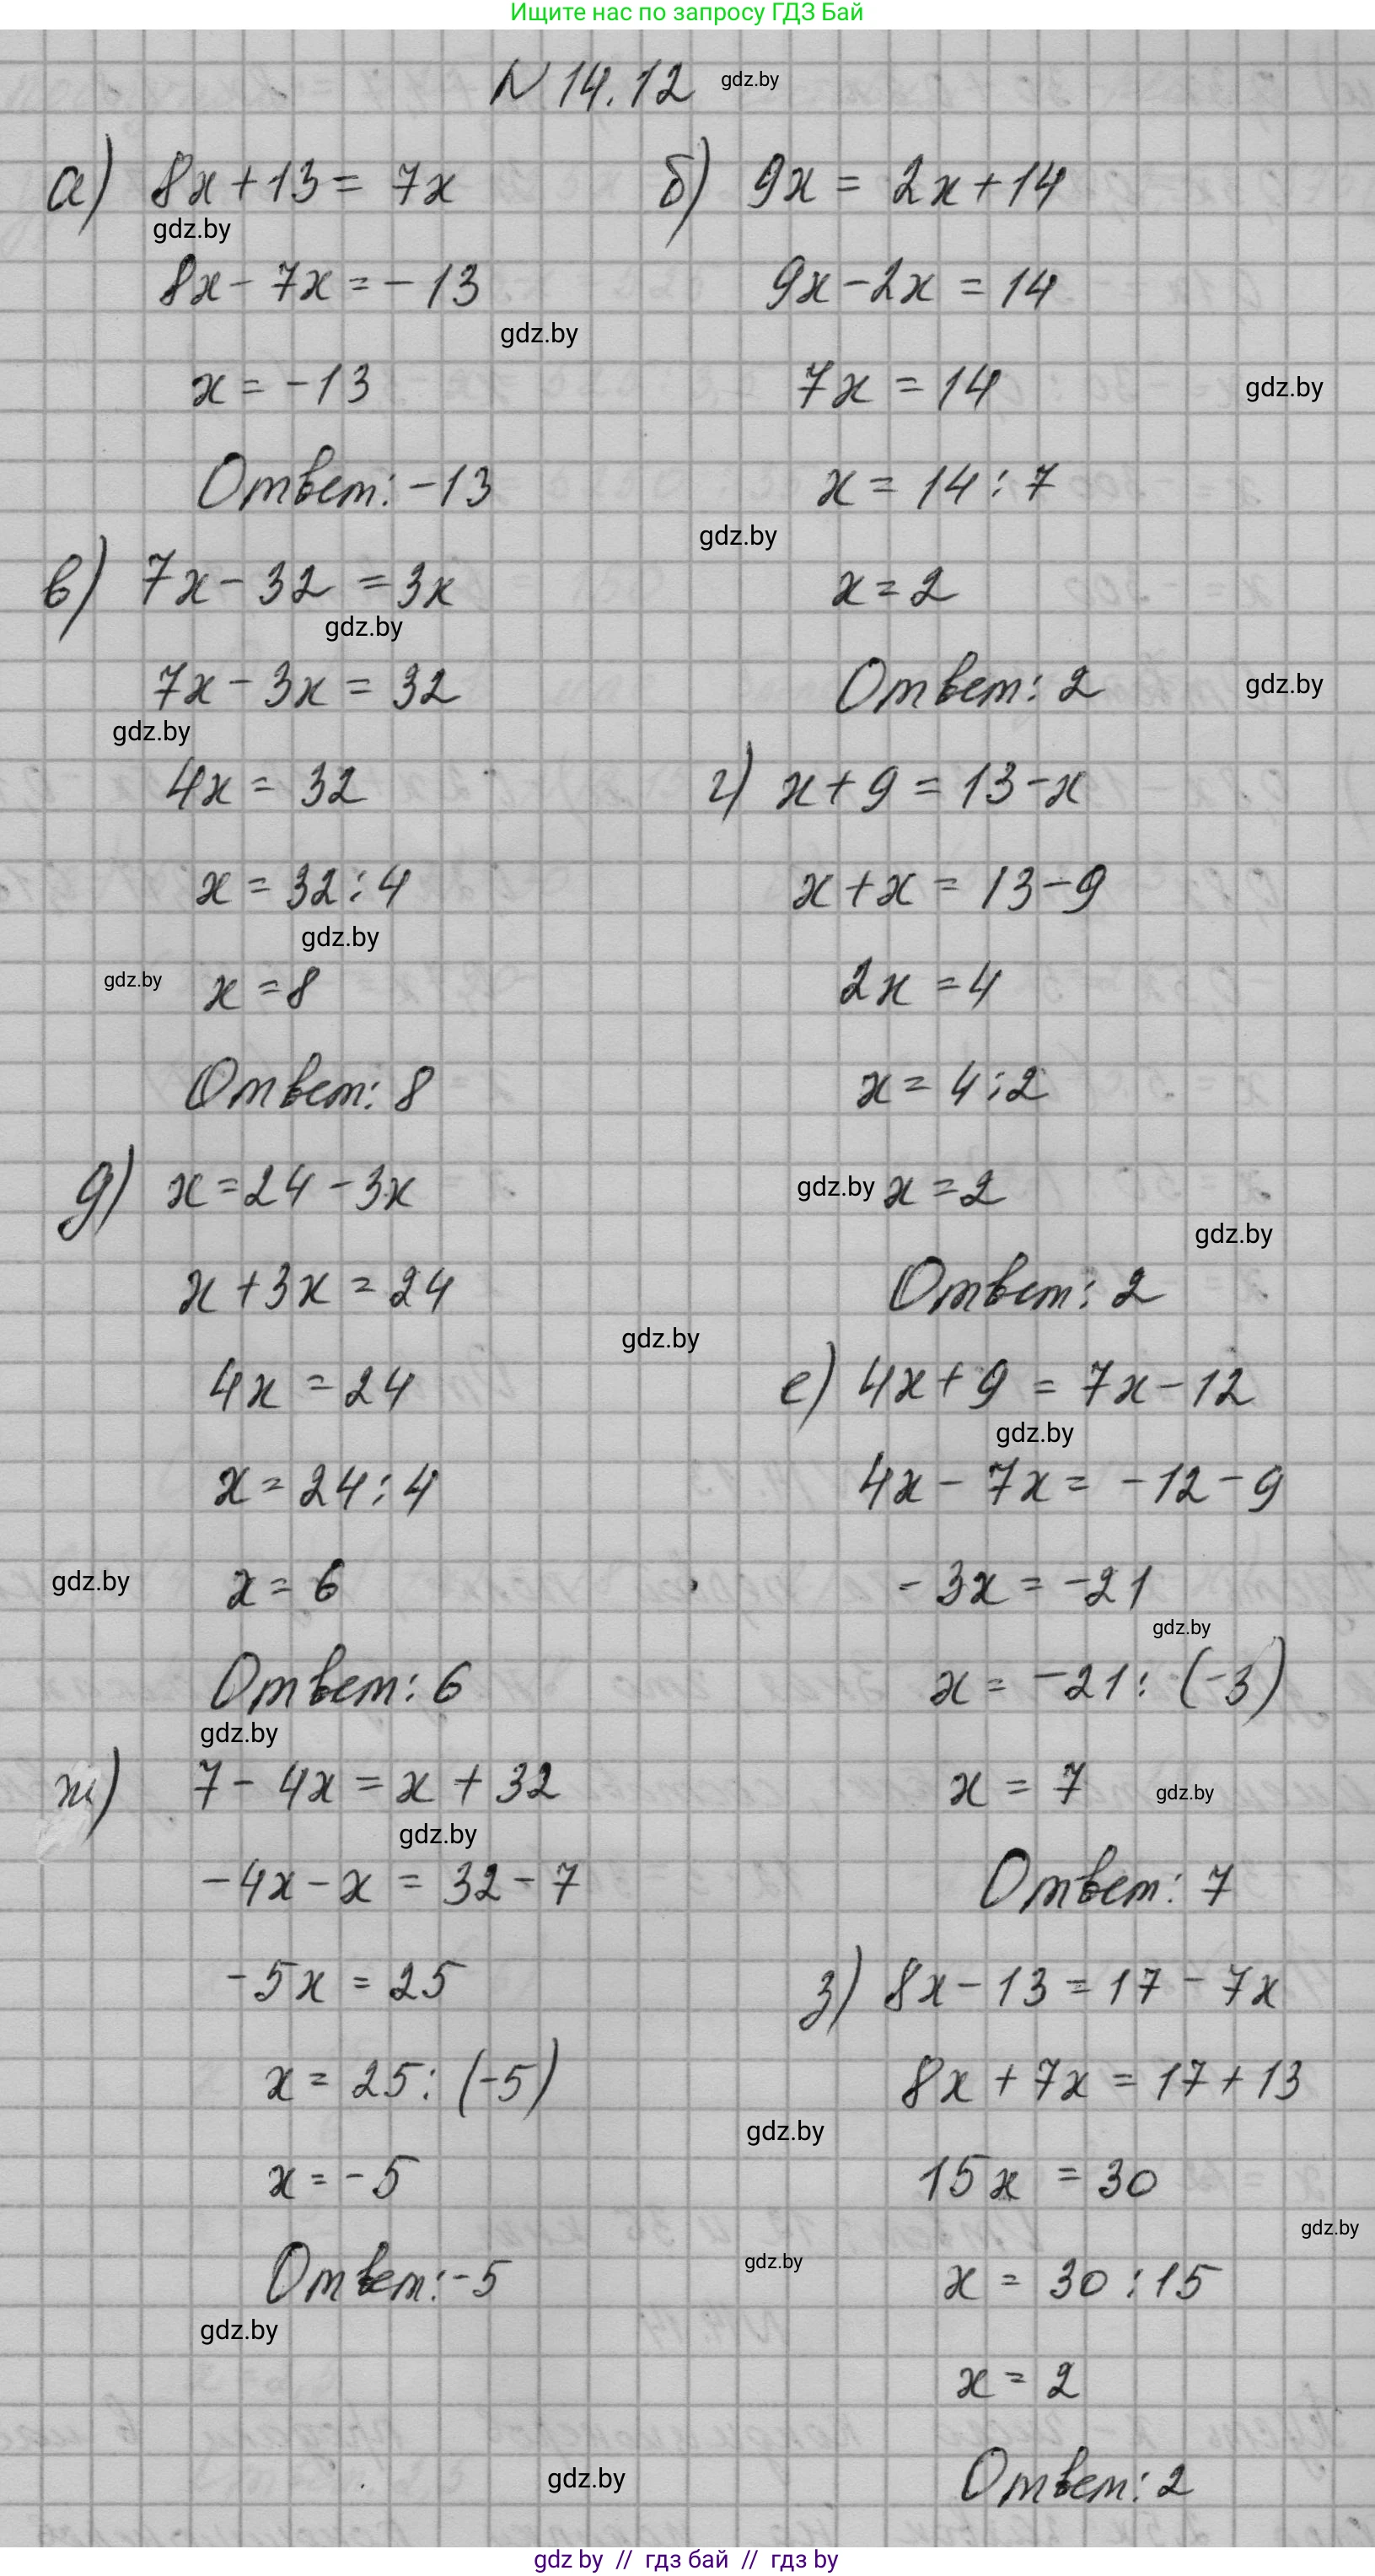 Ищите нас по запросу ГДЗ Бай
N 14.12
gdz.by
а) 8x + 13 = 7x
gdz.by
8x - 7x = - 13
gdz.by
x = - 13
Ответ: -13
б) 9x = 2x + 14
9x - 2x = 14
7x = 14
gdz.by
x = 14 : 7
gdz.by
x = 2
Ответ: 2
gdz.by
в) 7x - 32 = 3x
gdz.by
7x - 3x = 32
gdz.by
4x = 32
x = 32 : 4
gdz.by
gdz.by
x = 8
Ответ: 8
г) x + 9 = 13 - x
x + x = 13 - 9
2x = 4
x = 4 : 2
gdz.by
x = 2
gdz.by
Ответ: 2
д) x = 24 - 3x
x + 3x = 24
gdz.by
4x = 24
x = 24 : 4
gdz.by
x = 6
Ответ: 6
gdz.by
е) 4x + 9 = 7x - 12
gdz.by
4x - 7x = -12 - 9
- 3x = -21
gdz.by
x = -21 : (-3)
x = 7
gdz.by
Ответ: 7
ж) 7 - 4x = x + 32
gdz.by
-4x - x = 32 - 7
-5x = 25
x = 25 : (-5)
x = -5
Ответ: -5
gdz.by
з) 8x - 13 = 17 - 7x
8x + 7x = 17 + 13
gdz.by
15x = 30
gdz.by
gdz.by
x = 30 : 15
x = 2
Ответ: 2
gdz.by
gdz by // гдз бай // гдз by